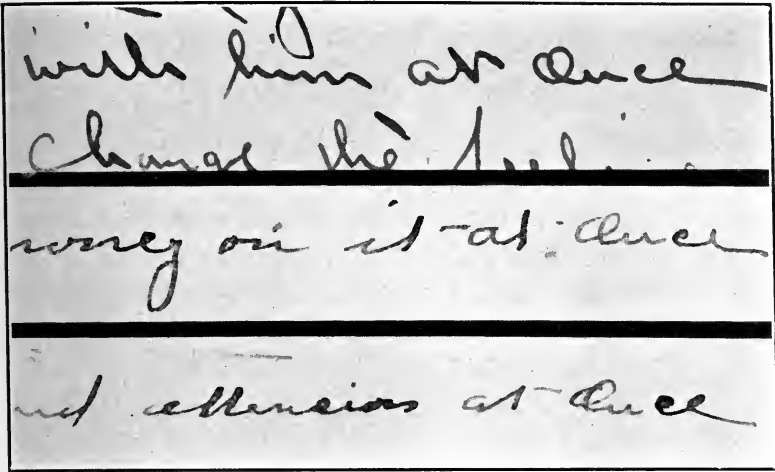 with him at once
change the feeling
money on it at once
attention at once